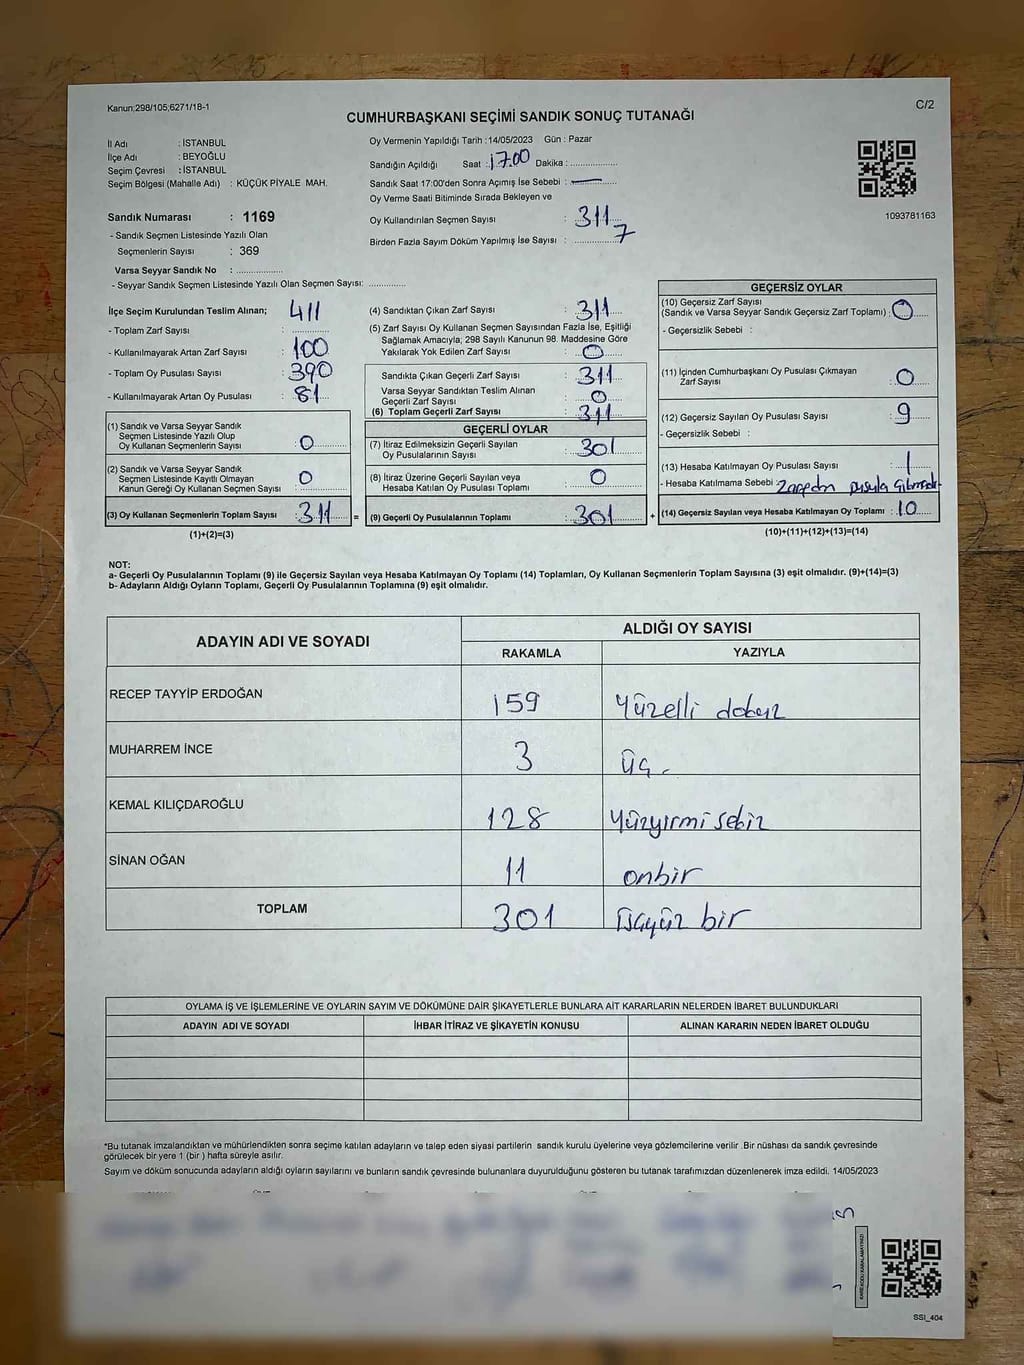 Kanun;298/105;6271/18-1
C/2
CUMHURBAŞKANI SEÇİMİ SANDIK SONUÇ TUTANAĞI
İl Adı : İSTANBUL
İlçe Adı : BEYOĞLU
Seçim Çevresi : İSTANBUL
Seçim Bölgesi (Mahalle Adı) : KÜÇÜK PİYALE MAH.
Sandık Numarası : 1169
- Sandık Seçmen Listesinde Yazılı Olan
Seçmenlerin Sayısı : 369
Varsa Seyyar Sandık No : ..............
- Seyyar Sandık Seçmen Listesinde Yazılı Olan Seçmen Sayısı: ............
Oy Vermenin Yapıldığı Tarih :14/05/2023 Gün : Pazar
Sandığın Açıldığı Saat : 17.00 Dakika : ..............
Sandık Saat 17:00'den Sonra Açımış İse Sebebi : —
Oy Verme Saati Bitiminde Sırada Bekleyen ve
Oy Kullandırılan Seçmen Sayısı : 311
Birden Fazla Sayım Döküm Yapılmış İse Sayısı : 7
1093781163
İlçe Seçim Kurulundan Teslim Alınan; 411
- Toplam Zarf Sayısı : ............
- Kullanılmayarak Artan Zarf Sayısı : 100
- Toplam Oy Pusulası Sayısı : 390
- Kullanılmayarak Artan Oy Pusulası : 81
(1) Sandık ve Varsa Seyyar Sandık
Seçmen Listesinde Yazılı Olup
Oy Kullanan Seçmenlerin Sayısı : 0
(2) Sandık ve Varsa Seyyar Sandık
Seçmen Listesinde Kayıtlı Olmayan
Kanun Gereği Oy Kullanan Seçmen Sayısı : 0
(3) Oy Kullanan Seçmenlerin Toplam Sayısı : 311 =
(1)+(2)=(3)
(4) Sandıktan Çıkan Zarf Sayısı : 311
(5) Zarf Sayısı Oy Kullanan Seçmen Sayısından Fazla İse, Eşitliği
Sağlamak Amacıyla; 298 Sayılı Kanunun 98. Maddesine Göre
Yakılarak Yok Edilen Zarf Sayısı : 0
Sandıkta Çıkan Geçerli Zarf Sayısı : 311
Varsa Seyyar Sandıktan Teslim Alınan
Geçerli Zarf Sayısı : 0
(6) Toplam Geçerli Zarf Sayısı : 311
GEÇERLİ OYLAR
(7) İtiraz Edilmeksizin Geçerli Sayılan
Oy Pusulalarının Sayısı : 301
(8) İtiraz Üzerine Geçerli Sayılan veya
Hesaba Katılan Oy Pusulası Toplamı : 0
(9) Geçerli Oy Pusulalarının Toplamı : 301 +
GEÇERSİZ OYLAR
(10) Geçersiz Zarf Sayısı
(Sandık ve Varsa Seyyar Sandık Geçersiz Zarf Toplamı) : 0
- Geçersizlik Sebebi :
(11) İçinden Cumhurbaşkanı Oy Pusulası Çıkmayan
Zarf Sayısı : 0
(12) Geçersiz Sayılan Oy Pusulası Sayısı : 9
- Geçersizlik Sebebi :
(13) Hesaba Katılmayan Oy Pusulası Sayısı : 1
- Hesaba Katılmama Sebebi : Zarftan pusula çıkmadı
(14) Geçersiz Sayılan veya Hesaba Katılmayan Oy Toplamı : 10
(10)+(11)+(12)+(13)=(14)
NOT:
a- Geçerli Oy Pusulalarının Toplamı (9) ile Geçersiz Sayılan veya Hesaba Katılmayan Oy Toplamı (14) Toplamları, Oy Kullanan Seçmenlerin Toplam Sayısına (3) eşit olmalıdır. (9)+(14)=(3)
b- Adayların Aldığı Oyların Toplamı, Geçerli Oy Pusulalarının Toplamına (9) eşit olmalıdır.
ADAYIN ADI VE SOYADI ALDIĞI OY SAYISI
RAKAMLA YAZIYLA
RECEP TAYYİP ERDOĞAN 159 Yüzelli dokuz
MUHARREM İNCE 3 üç.
KEMAL KILIÇDAROĞLU 128 yüzyirmi sekiz
SİNAN OĞAN 11 onbir
TOPLAM 301 üçyüz bir
OYLAMA İŞ VE İŞLEMLERİNE VE OYLARIN SAYIM VE DÖKÜMÜNE DAİR ŞİKAYETLERLE BUNLARA AİT KARARLARIN NELERDEN İBARET BULUNDUKLARI
ADAYIN ADI VE SOYADI İHBAR İTİRAZ VE ŞİKAYETİN KONUSU ALINAN KARARIN NEDEN İBARET OLDUĞU
*Bu tutanak imzalandıktan ve mühürlendikten sonra seçime katılan adayların ve talep eden siyasi partilerin sandık kurulu üyelerine veya gözlemcilerine verilir .Bir nüshası da sandık çevresinde
görülecek bir yere 1 (bir ) hafta süreyle asılır.
Sayım ve döküm sonucunda adayların aldığı oyların sayılarını ve bunların sandık çevresinde bulunanlara duyurulduğunu gösteren bu tutanak tarafımızdan düzenlenerek imza edildi. 14/05/2023
KAREKODU KARALAMAYINIZ!
SSI_404